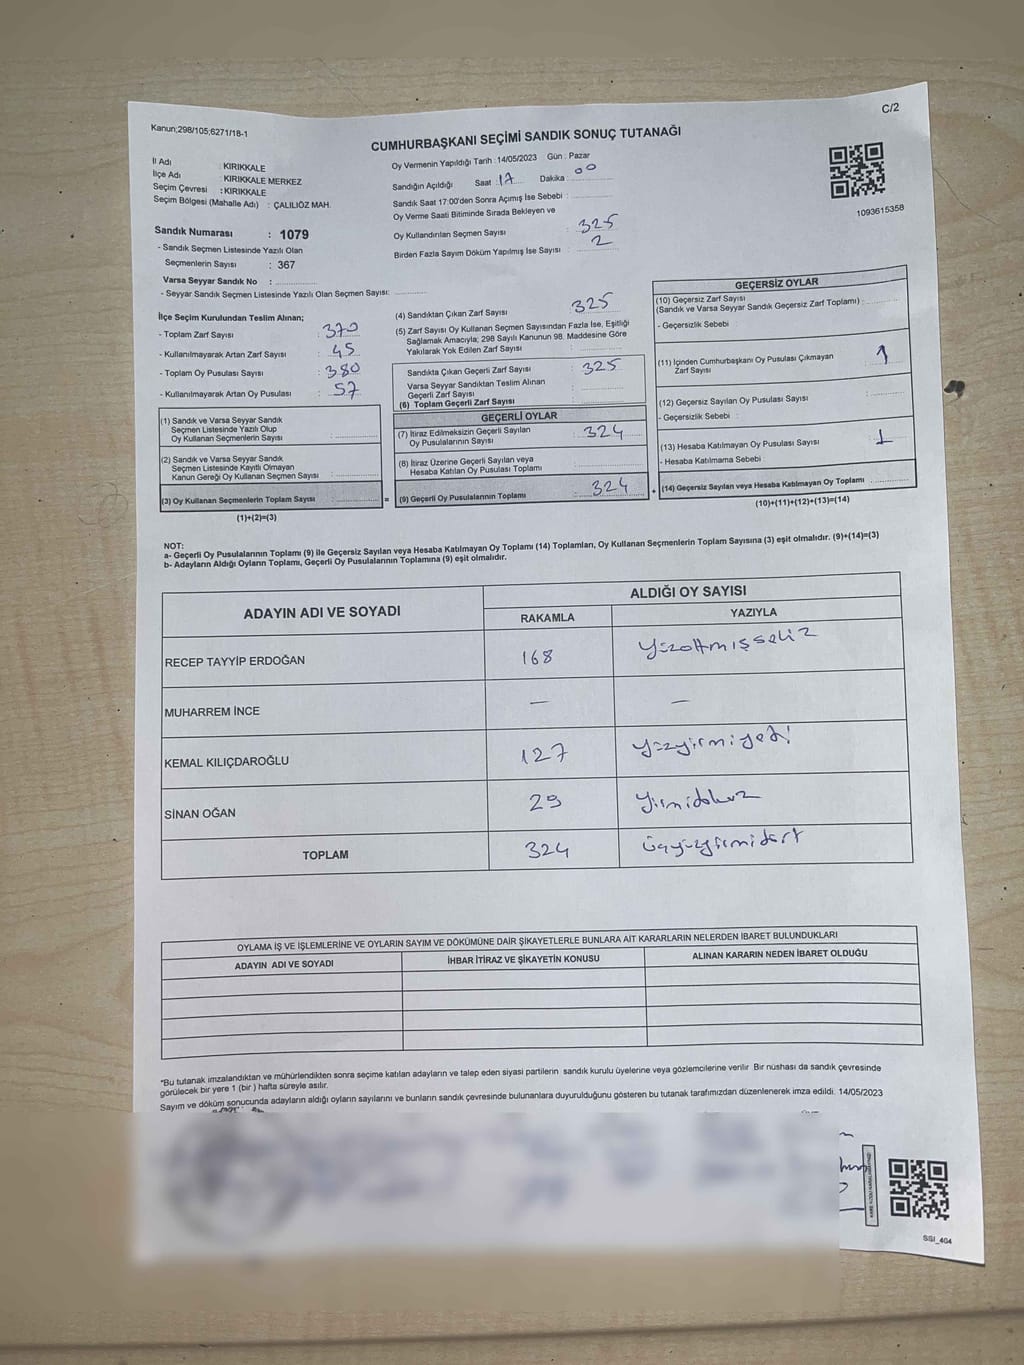 C/2
Kanun;298/105;6271/18-1
CUMHURBAŞKANI SEÇİMİ SANDIK SONUÇ TUTANAĞI
İl Adı : KIRIKKALE
İlçe Adı : KIRIKKALE MERKEZ
Seçim Çevresi : KIRIKKALE
Seçim Bölgesi (Mahalle Adı) : ÇALILIÖZ MAH.
Sandık Numarası : 1079
- Sandık Seçmen Listesinde Yazılı Olan
Seçmenlerin Sayısı : 367
Varsa Seyyar Sandık No :
- Seyyar Sandık Seçmen Listesinde Yazılı Olan Seçmen Sayısı:
Oy Vermenin Yapıldığı Tarih : 14/05/2023 Gün : Pazar
Sandığın Açıldığı Saat : 17 Dakika : 00
Sandık Saat 17:00'den Sonra Açımış İse Sebebi :
Oy Verme Saati Bitiminde Sırada Bekleyen ve
Oy Kullandırılan Seçmen Sayısı : 325
Birden Fazla Sayım Döküm Yapılmış İse Sayısı : 2
1093615358
İlçe Seçim Kurulundan Teslim Alınan;
- Toplam Zarf Sayısı : 370
- Kullanılmayarak Artan Zarf Sayısı : 45
- Toplam Oy Pusulası Sayısı : 380
- Kullanılmayarak Artan Oy Pusulası : 57
(1) Sandık ve Varsa Seyyar Sandık
Seçmen Listesinde Yazılı Olup
Oy Kullanan Seçmenlerin Sayısı :
(2) Sandık ve Varsa Seyyar Sandık
Seçmen Listesinde Kayıtlı Olmayan
Kanun Gereği Oy Kullanan Seçmen Sayısı :
(3) Oy Kullanan Seçmenlerin Toplam Sayısı : =
(1)+(2)=(3)
(4) Sandıktan Çıkan Zarf Sayısı : 325
(5) Zarf Sayısı Oy Kullanan Seçmen Sayısından Fazla İse, Eşitliği
Sağlamak Amacıyla; 298 Sayılı Kanunun 98. Maddesine Göre
Yakılarak Yok Edilen Zarf Sayısı :
Sandıkta Çıkan Geçerli Zarf Sayısı : 325
Varsa Seyyar Sandıktan Teslim Alınan
Geçerli Zarf Sayısı :
(6) Toplam Geçerli Zarf Sayısı :
GEÇERLİ OYLAR
(7) İtiraz Edilmeksizin Geçerli Sayılan
Oy Pusulalarının Sayısı : 324
(8) İtiraz Üzerine Geçerli Sayılan veya
Hesaba Katılan Oy Pusulası Toplamı :
(9) Geçerli Oy Pusulalarının Toplamı : 324 +
GEÇERSİZ OYLAR
(10) Geçersiz Zarf Sayısı
(Sandık ve Varsa Seyyar Sandık Geçersiz Zarf Toplamı) :
- Geçersizlik Sebebi
(11) İçinden Cumhurbaşkanı Oy Pusulası Çıkmayan
Zarf Sayısı : 1
(12) Geçersiz Sayılan Oy Pusulası Sayısı :
- Geçersizlik Sebebi :
(13) Hesaba Katılmayan Oy Pusulası Sayısı : 1
- Hesaba Katılmama Sebebi :
(14) Geçersiz Sayılan veya Hesaba Katılmayan Oy Toplamı :
(10)+(11)+(12)+(13)=(14)
NOT:
a- Geçerli Oy Pusulalarının Toplamı (9) ile Geçersiz Sayılan veya Hesaba Katılmayan Oy Toplamı (14) Toplamları, Oy Kullanan Seçmenlerin Toplam Sayısına (3) eşit olmalıdır. (9)+(14)=(3)
b- Adayların Aldığı Oyların Toplamı, Geçerli Oy Pusulalarının Toplamına (9) eşit olmalıdır.
ADAYIN ADI VE SOYADI ALDIĞI OY SAYISI
RAKAMLA YAZIYLA
RECEP TAYYİP ERDOĞAN 168 Yüzaltmışsekiz
MUHARREM İNCE — —
KEMAL KILIÇDAROĞLU 127 Yüzyirmiyedi
SİNAN OĞAN 29 Yirmidokuz
TOPLAM 324 üçyüzyirmidört
OYLAMA İŞ VE İŞLEMLERİNE VE OYLARIN SAYIM VE DÖKÜMÜNE DAİR ŞİKAYETLERLE BUNLARA AİT KARARLARIN NELERDEN İBARET BULUNDUKLARI
ADAYIN ADI VE SOYADI İHBAR İTİRAZ VE ŞİKAYETİN KONUSU ALINAN KARARIN NEDEN İBARET OLDUĞU
*Bu tutanak imzalandıktan ve mühürlendikten sonra seçime katılan adayların ve talep eden siyasi partilerin sandık kurulu üyelerine veya gözlemcilerine verilir Bir nüshası da sandık çevresinde
görülecek bir yere 1 (bir ) hafta süreyle asılır.
Sayım ve döküm sonucunda adayların aldığı oyların sayılarını ve bunların sandık çevresinde bulunanlara duyurulduğunu gösteren bu tutanak tarafımızdan düzenlenerek imza edildi. 14/05/2023
SSI_404